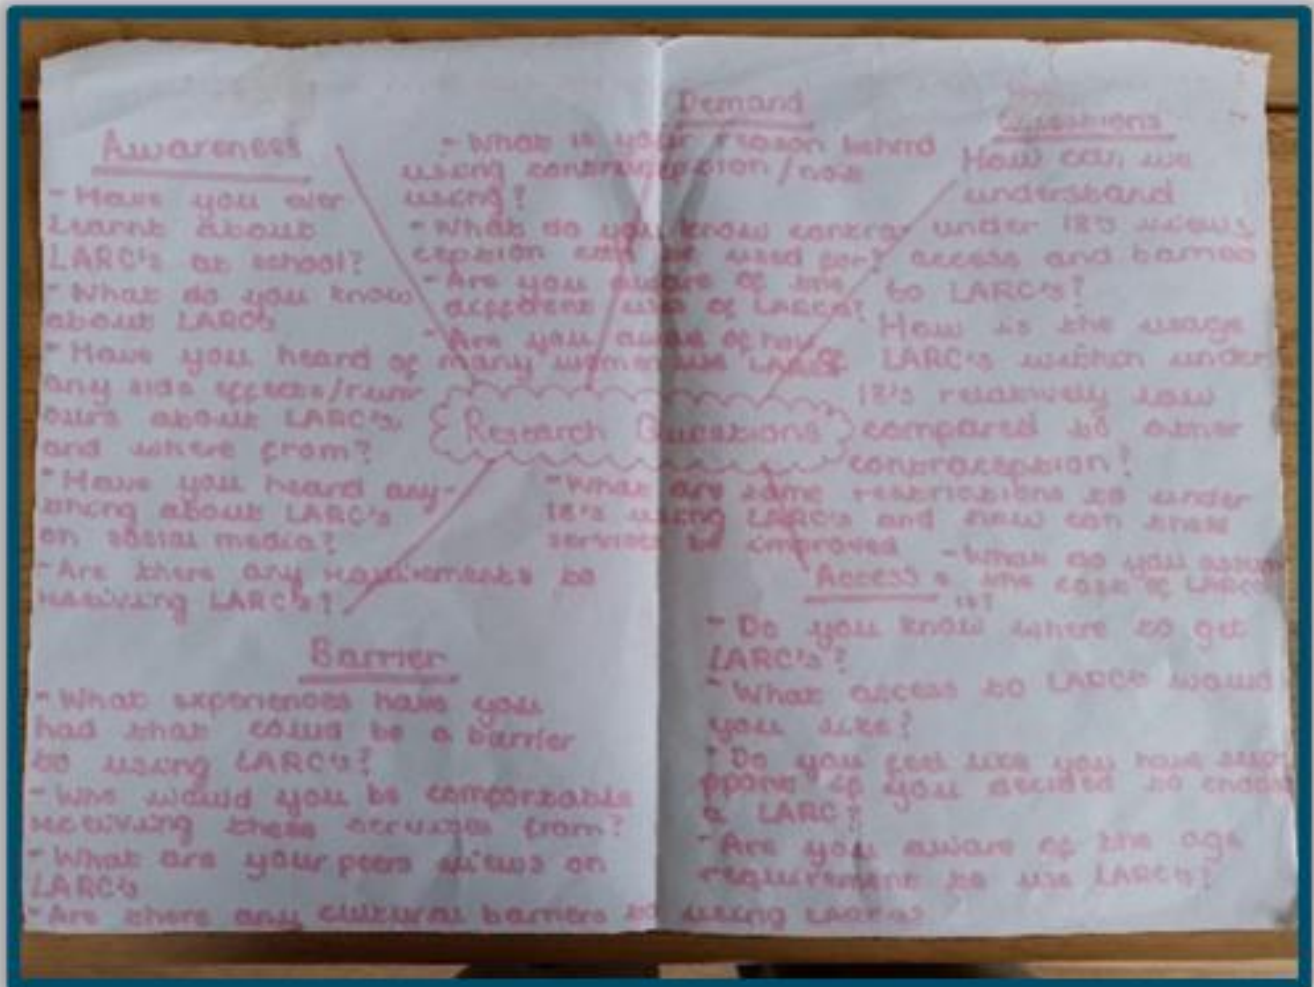 Awareness
- Have you ever
learnt about
LARC's at school?
- What do you know
about LARCs
- Have you heard of
any side effects/rum
ours about LARC's
and where from?
- Have you heard any-
thing about LARC's
on social media?
- Are there any requirements to
receiving LARC's?
Demand
- What is your reason behind
using contraception/not
using?
- What do you know contra-
ception can be used for?
- Are you aware of the
different use of LARCs?
- Are you aware of how
many women use LARCs
Questions
How can we
understand
under 18's views
access and barries
to LARC's?
How is the usage
LARC's within under
18's relatively low
compared to other
contraception?
Research Questions
- What are some restrictions to under
18's using LARC's and how can these
services be improved
Access
- What do you assum
the cost of LARCs
is?
- Do you know where to get
LARC's?
- What access to LARCs would
you like?
- Do you feel like you have sup-
pport if you decided to
a LARC?
- Are you aware of the age
requirement to use LARC's?
Barrier
- What experiences have you
had that could be a barrier
to using LARC's?
- Who would you be comfortable
receiving these services from?
- What are your peers views on
LARC's
- Are there any cultural barriers to using LARCs